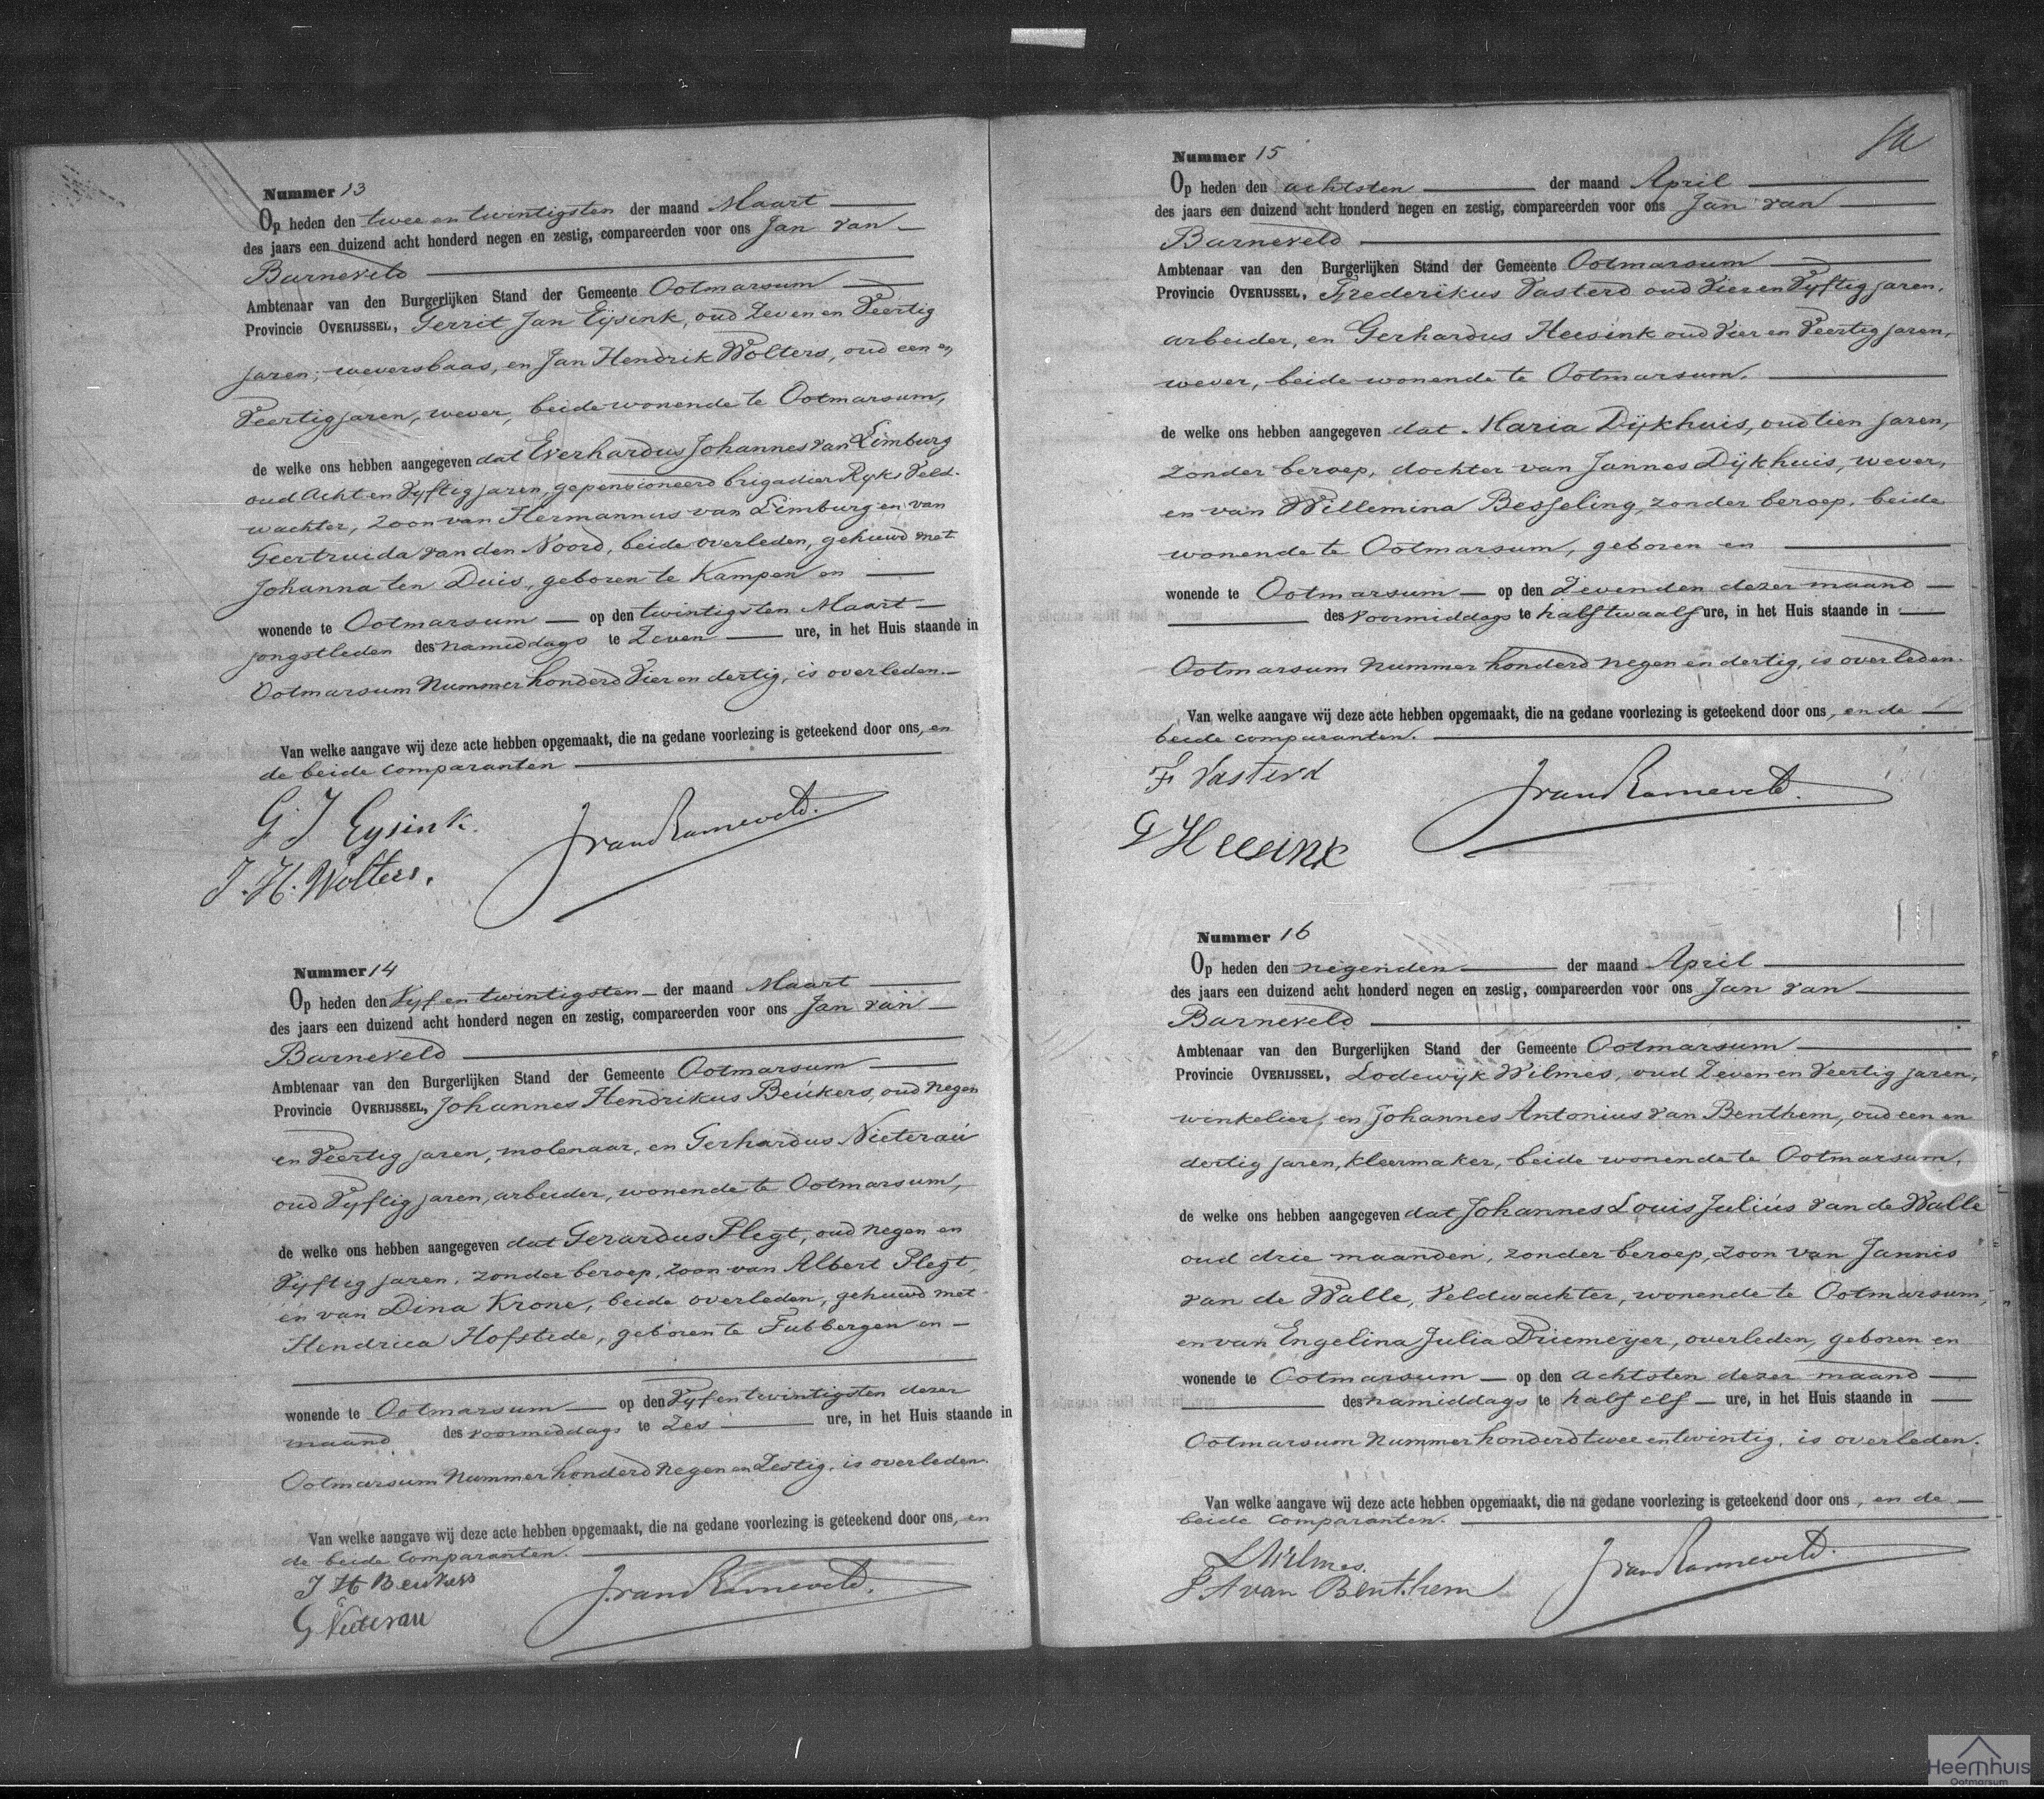 Nummer 13
Op heden den twee en twintigsten der maand Maart
des jaars een duizend acht honderd negen en zestig, compareerden voor ons Jan van
Barneveld
Ambtenaar van den Burgerlijken Stand der Gemeente Ootmarsum
Provincie OVERIJSSEL, Gerrit Jan Eijsink, oud Zeven en Veertig
jaren, weversbaas, en Jan Hendrik Wolters, oud een en
Veertig jaren, wever, beide wonende te Ootmarsum,
de welke ons hebben aangegeven dat Everhardus Johannes van Limburg
oud Acht en Vyftig jaren, gepensioneerd brigadier Ryks Veld-
wachter, zoon van Hermannus van Limburg en van
Geertruida van den Noord, beide overleden, gehuwd met
Johanna ten Duis, geboren te Kampen en
wonende te Ootmarsum op den twintigsten Maart
jongstleden des namiddags te Zeven ure, in het Huis staande in
Ootmarsum Nummer honderd Vier en dertig, is overleden.
Van welke aangave wij deze acte hebben opgemaakt, die na gedane voorlezing is geteekend door ons, en
de beide comparanten
G J Eysink.
J. H. Wolters.
J van Barneveld.
Nummer 14
Op heden den Vyf en twintigsten der maand Maart
des jaars een duizend acht honderd negen en zestig, compareerden voor ons Jan van
Barneveld
Ambtenaar van den Burgerlijken Stand der Gemeente Ootmarsum
Provincie OVERIJSSEL, Johannes Hendrikus Beukers, oud negen
en Veertig jaren, molenaar, en Gerhardus Nieterau
oud Vyftig jaren, arbeider, wonende te Ootmarsum,
de welke ons hebben aangegeven dat Gerardus Plegt, oud negen en
Vijftig jaren, zonder beroep, zoon van Albert Plegt,
en van Dina Krone, beide overleden, gehuwd met
Hendrica Hofstede, geboren te Tubbergen en
wonende te Ootmarsum op den Vyf en twintigsten dezer
maand des voormiddags te Zes ure, in het Huis staande in
Ootmarsum Nummer honderd Negen en Zestig, is overleden.
Van welke aangave wij deze acte hebben opgemaakt, die na gedane voorlezing is geteekend door ons, en
de beide comparanten.
J H Beukers
G Nieterau
J. van Barneveld.
Nummer 15
Op heden den achtsten der maand April
des jaars een duizend acht honderd negen en zestig, compareerden voor ons Jan van
Barneveld
Ambtenaar van den Burgerlijken Stand der Gemeente Ootmarsum
Provincie OVERIJSSEL, Frederikus Vasterd oud Vier en Vyftig jaren,
arbeider, en Gerhardus Heesink oud Vier en Veertig jaren,
wever, beide wonende te Ootmarsum.
de welke ons hebben aangegeven dat Maria Dijkhuis, oud tien jaren,
zonder beroep, dochter van Jannes Dijkhuis, wever,
en van Willemina Besseling, zonder beroep, beide
wonende te Ootmarsum, geboren en
wonende te Ootmarsum op den Zevenden dezer maand
des voormiddags te half twaalf ure, in het Huis staande in
Ootmarsum Nummer honderd negen en dertig, is overleden.
Van welke aangave wij deze acte hebben opgemaakt, die na gedane voorlezing is geteekend door ons, en de
beide comparanten.
F Vasterd
G Heesink
J van Barneveld.
Nummer 16
Op heden den negenden der maand April
des jaars een duizend acht honderd negen en zestig, compareerden voor ons Jan van
Barneveld
Ambtenaar van den Burgerlijken Stand der Gemeente Ootmarsum
Provincie OVERIJSSEL, Lodewijk Wilmes, oud Zeven en Veertig jaren,
winkelier, en Johannes Antonius van Benthem, oud een en
dertig jaren, kleermaker, beide wonende te Ootmarsum,
de welke ons hebben aangegeven dat Johannes Louis Julius van de Walle
oud drie maanden, zonder beroep, zoon van Jannis
van de Walle, Veldwachter, wonende te Ootmarsum,
en van Engelina Julia Driemeijer, overleden, geboren en
wonende te Ootmarsum op den achtsten dezer maand
des namiddags te half elf ure, in het Huis staande in
Ootmarsum Nummer honderd twee en twintig, is overleden.
Van welke aangave wij deze acte hebben opgemaakt, die na gedane voorlezing is geteekend door ons, en de
beide comparanten.
L Wilmes.
J A van Benthem
J van Barneveld.
Heemhuis
Ootmarsum